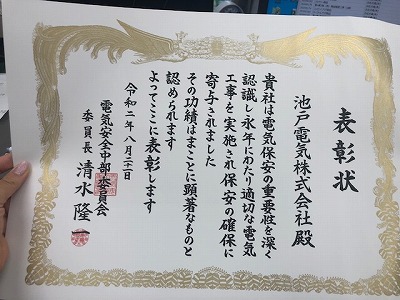 表彰状
池戸電気株式会社殿
貴社は電気保安の重要性を深く
認識し永年にわたり適切な電気
工事を実施され保安の確保に
寄与されました
その功績はまことに顕著なものと
認められます
よってここに表彰します
令和二年八月二十一日
電気安全中部委員会
委員長 清水隆一